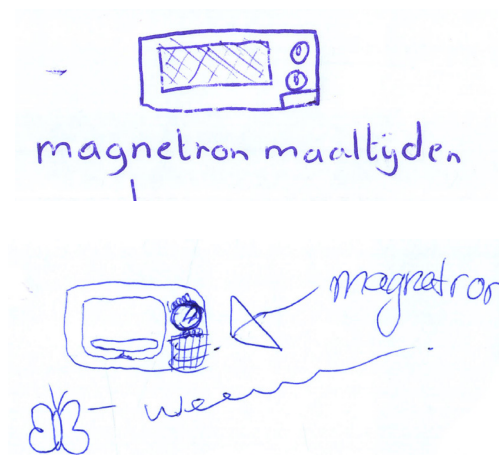 magnetron maaltijden
magnetron